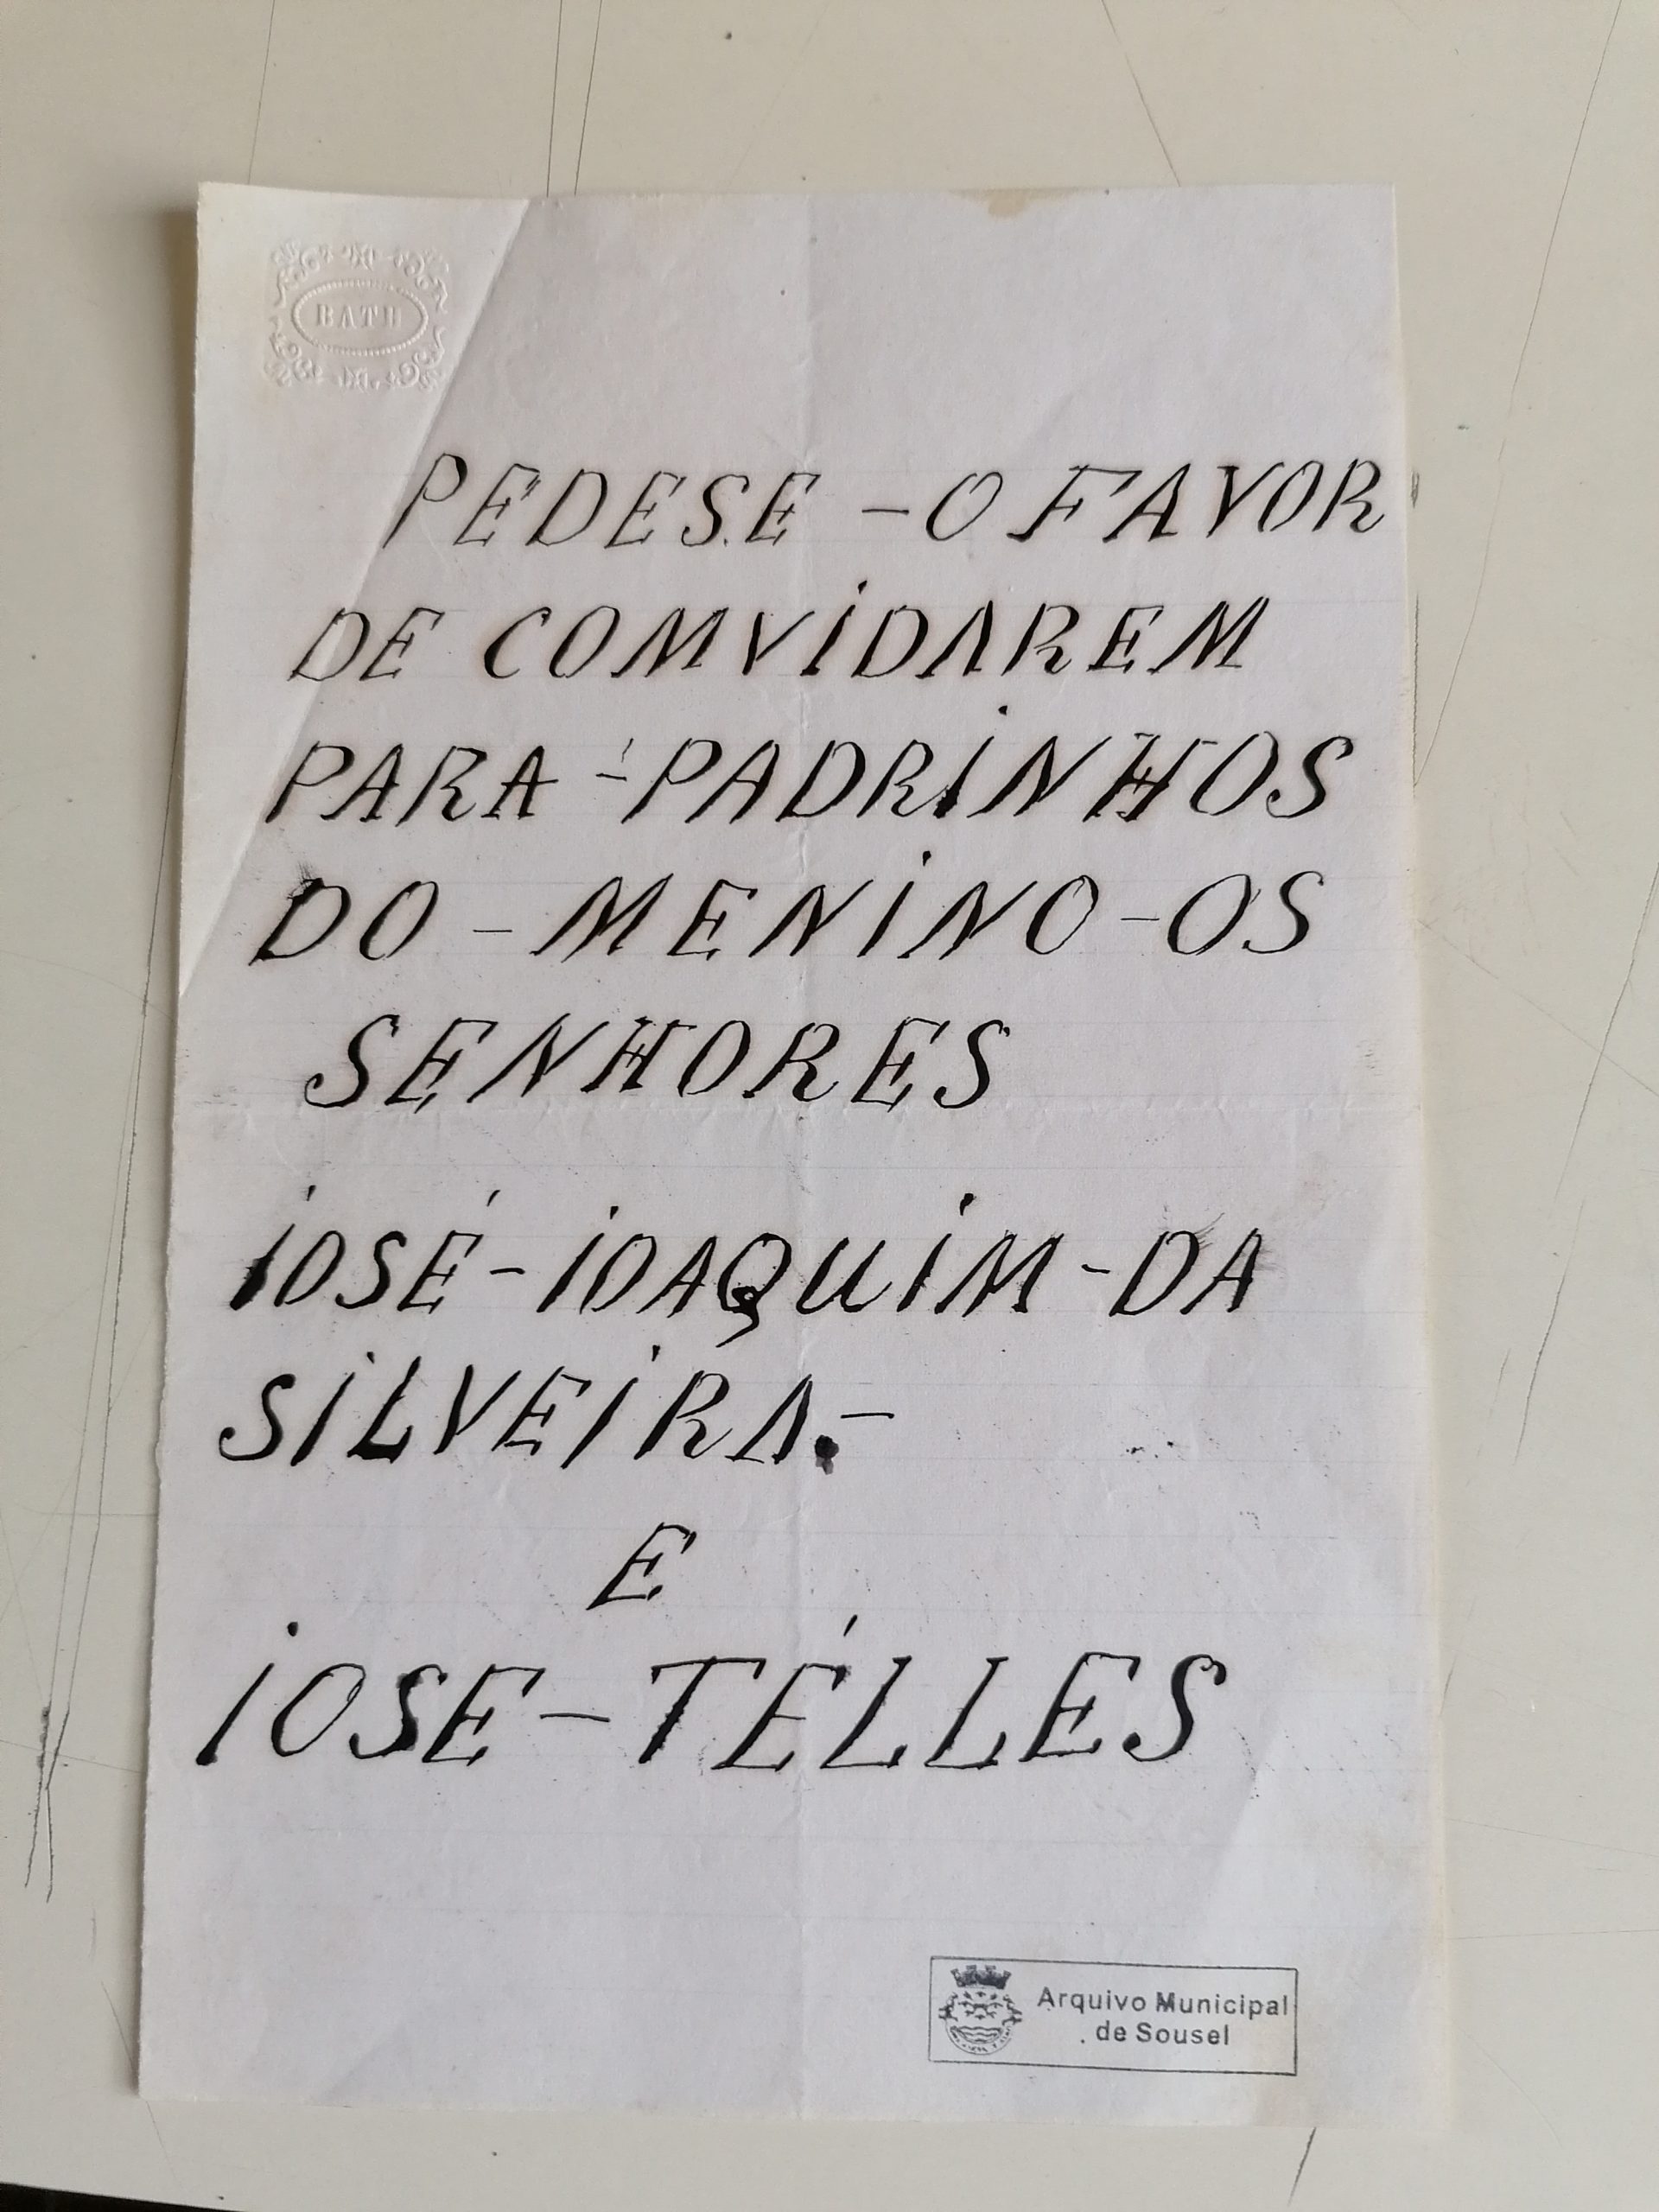 BATH
PEDESE - O FAVOR
DE COMVIDAREM
PARA - PADRINHOS
DO - MENINO - OS
SENHORES
IOSÉ - IOAQUIM - DA
SILVEIRA. -
E
IOSE - TÉLLES
Arquivo Municipal
de Sousel